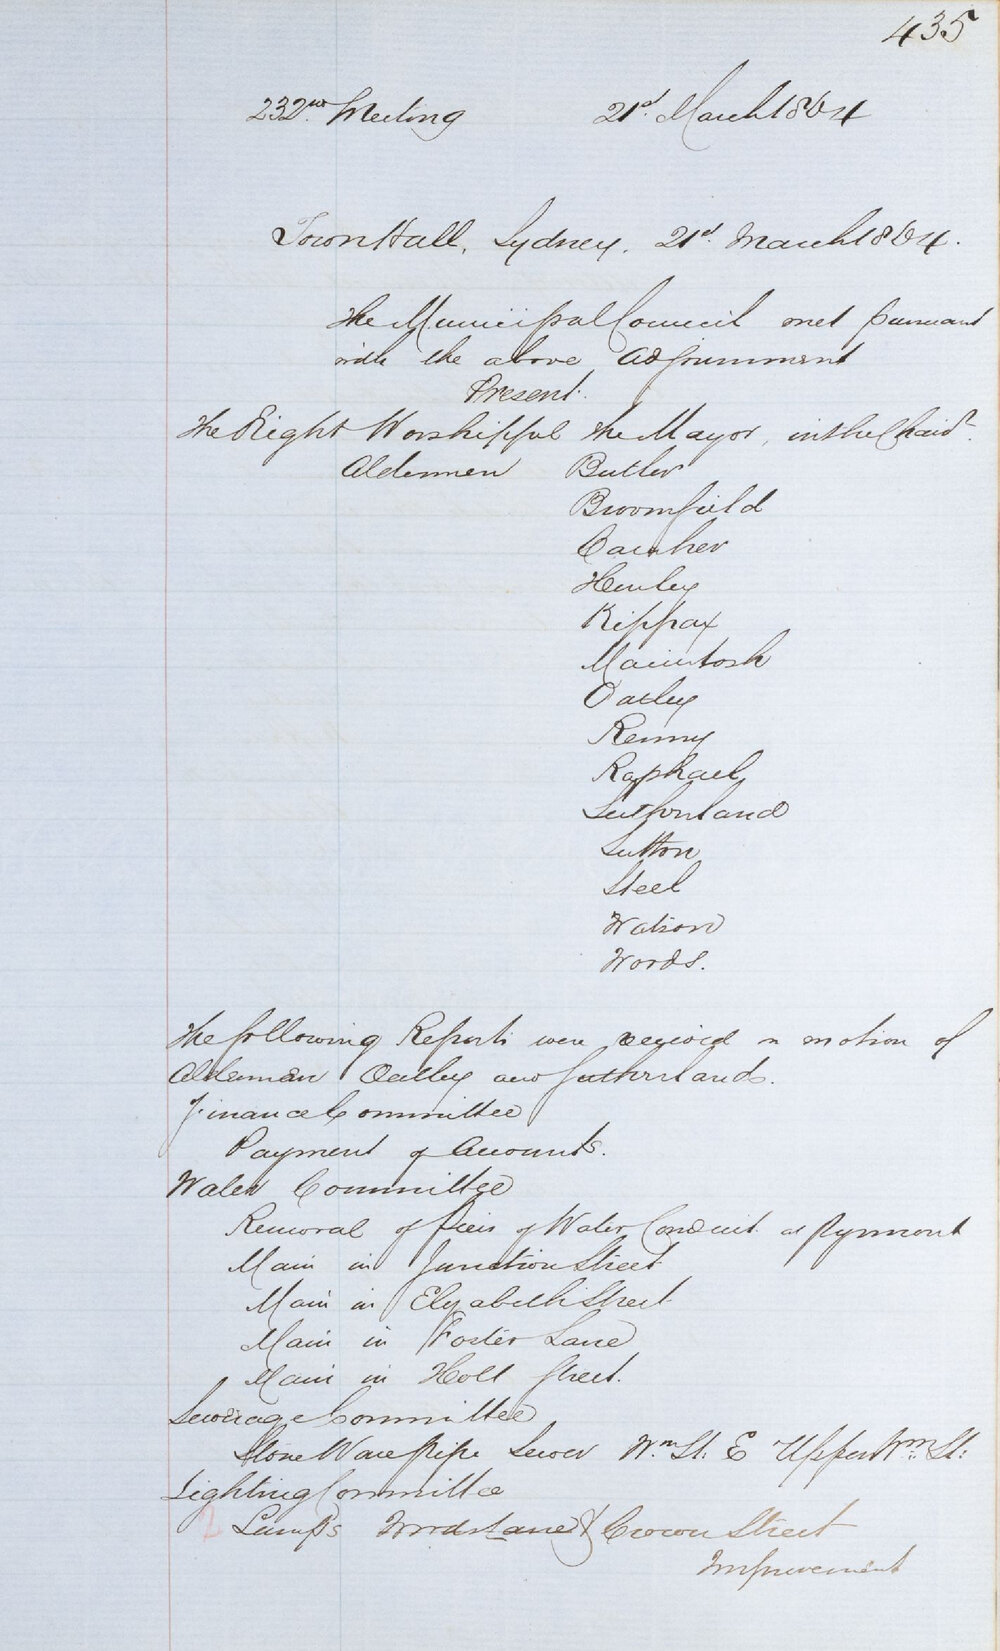 435
232nd Meeting 21st March 1864
Town Hall, Sydney, 21st March 1864.
The Municipal Council met pursuant
with the above Adjournment
Present.
The Right Worshipful the Mayor, in the Chair.
Aldermen Butler
Broomfield
Caraher
Henley
Kippax
Macintosh
Oatley
Renny
Raphael
Sutherland
Sutton
Steel
Watson
Woods.
The following Reports were received on motion of
Alderman Oatley and Sutherlands.
Finance Committee
Payment of Accounts.
Water Committee
Removal of Piers of Water Conduit at Pyrmont
Main in Junction Street
Main in Elizabeth Street
Main in Foster Lane
Main in Holt Street.
Sewerage Committee
Stone Ware Pipe Sewer Wm. St. E Upper Wm. St.
Lighting Committee
2 Lamps Woods Lane & Crown Street
Improvement